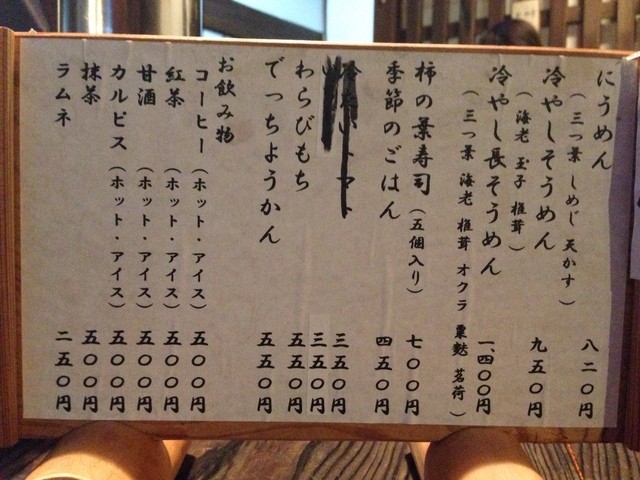 にうめん 八二〇円
（三つ葉 しめじ 天かす）
冷やしそうめん 九五〇円
（海老 玉子 椎茸）
冷やし長そうめん 一、四〇〇円
（三つ葉 海老 椎茸 オクラ 粟麩 茗荷）
柿の葉寿司（五個入り） 七〇〇円
季節のごはん 四五〇円
トマト 三五〇円
三五〇円
わらびもち 五五〇円
でっちようかん 五五〇円
お飲み物
コーヒー（ホット・アイス） 五〇〇円
紅茶（ホット・アイス） 五〇〇円
甘酒（ホット・アイス） 五〇〇円
カルピス（ホット・アイス） 五〇〇円
抹茶 五〇〇円
ラムネ 二五〇円